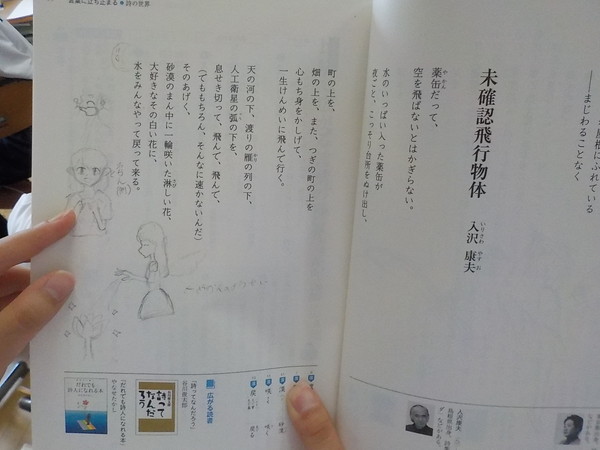 屋根にふれている
――まじわることなく
未確認飛行物体
入沢 康夫
いりさわ やすお
薬缶だって、
やかん
空を飛ばないとはかぎらない。
水のいっぱい入った薬缶が
夜ごと、こっそり台所をぬけ出し、
町の上を、
畑の上を、また、つぎの町の上を
心もち身をかしげて、
一生けんめいに飛んで行く。
天の河の下、渡りの雁の列の下、
人工衛星の弧の下を、
息せき切って、飛んで、飛んで、
(でももちろん、そんなに速かないんだ)
そのあげく、
砂漠のまん中に一輪咲いた淋しい花、
大好きなその白い花に、
水をみんなやって戻って来る。
言葉に立ち止まる
詩の世界
広がる読書
「詩ってなんだろう」
谷川俊太郎
詩ってなんだろう
「だれでも詩人になれる本」
やなせたかし
だれでも詩人になれる本
入沢康夫